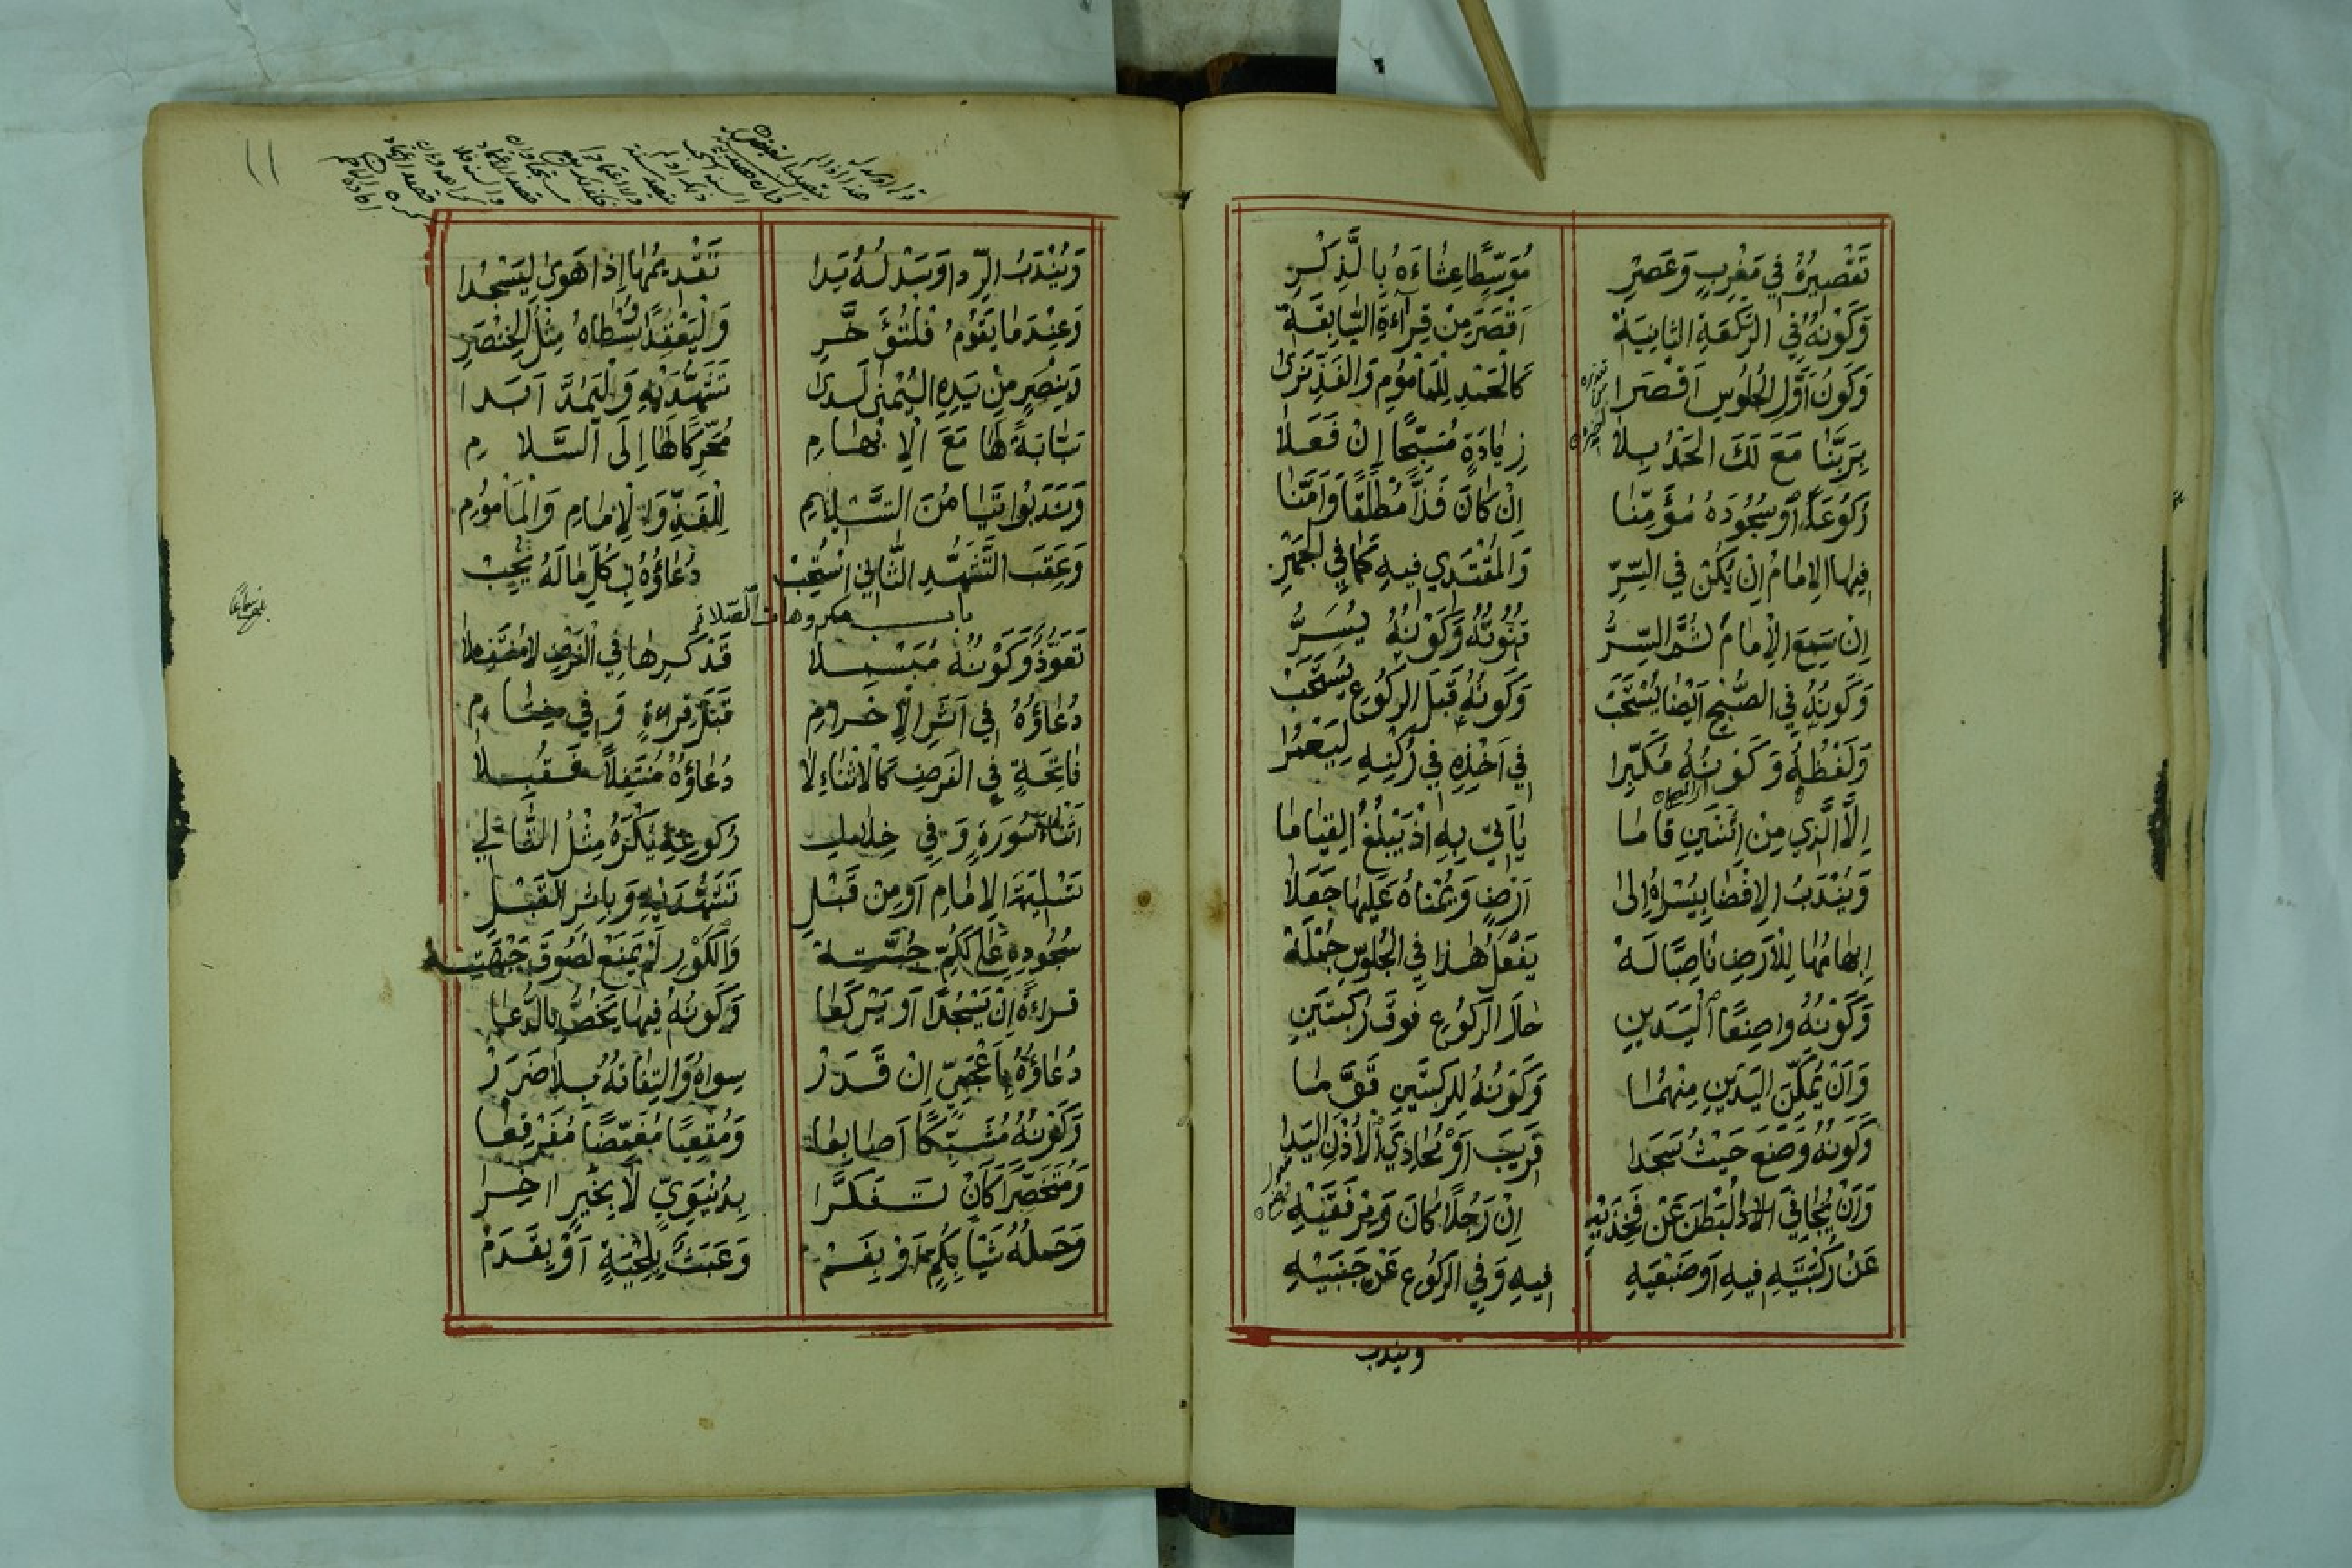 تَقْصِيرُهُ فِي مَغْرِبٍ وَعَصْرِ مُوَسِّطًا عِشَاءَهُ بِالذِّكْرِ
وَكَوْنُهُ فِي الرَّكْعَةِ الثَّانِيَةْ اَقْصَرَ مِنْ قِرَاءَةِ السَّابِقَةْ
وَكَوْنُ اَوَّلِ الْجُلُوسِ اَقْصَرَا كَالْحَمْدِ لِلْمَأْمُومِ وَالْفَذِّ تَرَى
بِرَبَّنَا مَعَ لَكَ الْحَمْدُ بِلَا زِيَادَةٍ مُسَبِّحًا اِنْ فَعَلَا
رُكُوعَهُ اَوْ سُجُودَهُ مُؤَمِّنَا اِنْ كَانَ فَذًّا مُطْلَقًا وَاَمَّنَا
فِيهَا الْاِمَامُ اِنْ يَكُنْ فِي السِّرِّ وَالْمُقْتَدِي فِيهِ كَمَا فِي الْجَهْرِ
اِنْ سَمِعَ الْاِمَامَ ثُمَّ السِّرُّ قُنُوتُهُ وَكَوْنُهُ يُسَرُّ
وَكَوْنُهُ فِي الصُّبْحِ اَيْضًا يُسْتَحَبْ وَكَوْنُهُ قَبْلَ الرُّكُوعِ يُسْتَحَبْ
وَلَفْظُهُ وَكَوْنُهُ مُكَبِّرَا فِي اَخْذِهِ فِي رُكْنِهِ لِيَعْمُرَا
اِلَّا الَّذِي مِنْ اثْنَتَيْنِ قَامَا يَاْتِي بِهِ اِذْ يَبْلُغُ الْقِيَامَا
وَيُنْدَبُ الْاِفْضَا بِيُسْرَاهُ اِلَى اَرْضٍ وَيُمْنَاهُ عَلَيْهَا جَعَلَا
اِبْهَامُهَا لِلْاَرْضِ نَاصِبًا لَهْ يَفْعَلُ هٰذَا فِي الْجُلُوسِ جُمْلَهْ
وَكَوْنُهُ وَاضِعًا الْيَدَيْنِ حَالَ الرُّكُوعِ فَوْقَ رُكْبَتَيْنِ
وَاَنْ يُمَكِّنَ الْيَدَيْنِ مِنْهُمَا وَكَوْنُهُ لِلرُّكْبَتَيْنِ قَوَّمَا
وَكَوْنُهُ وَضَعَ حَيْثُ سَجَدَا قَرِيبَ اَوْ مُحَاذِيَ الْاُذْنِ الْيَدَا
وَاَنْ يُجَافِيَ الْبَطْنَ عَنْ فَخِذَيْهِ اِنْ رَجُلًا كَانَ وَمِرْفَقَيْهِ
عَنْ رُكْبَتَيْهِ فِيهِ اَوْ ضَبْعَيْهِ فِيهِ وَفِي الرُّكُوعِ عَنْ جَنْبَيْهِ
ويندب
١١
وَيُنْدَبُ الرِّدَا وَسَدْلُهُ يَدَا تَقْدِيمُهَا اِذَا هَوَى لِيَسْجُدَا
وَعِنْدَ مَا يَقُومُ فَلْتُؤَخَّرِ وَلْيَعْقِدْ وُسْطَاهُ مِثْلَ الْخِنْصِرِ
وَبِنْصِرٍ مِنْ يَدِهِ الْيُمْنَى لَدَى تَشَهُّدَيْهِ وَلْيَمُدَّ اَبَدَا
سَبَّابَةً لَهَا مَعَ الْاِبْهَامِ مُحَرِّكًا لَهَا اِلَى السَّلَامِ
وَنَدَبُوا تَيَامُنَ التَّسْلِيمِ لِلْفَذِّ وَالْاِمَامِ وَالْمَأْمُومِ
وَعَقِبَ التَّشَهُّدِ الثَّانِي اسْتُحِبْ دُعَاؤُهُ بِكُلِّ مَا لَهُ يُحِبْ
باب مكروهات الصلاة
تَعَوُّذٌ وَكَوْنُهُ مُبَسْمِلَا قَدْ كُرِهَا فِي الْفَرْضِ لَا
دُعَاؤُهُ فِي اَثَرِ الْاِحْرَامِ قَبْلَ قِرَاءَةٍ وَفِي خِتَامِ
فَاتِحَةٍ فِي الْفَرْضِ كَالْاَثْنَاءِ لَا دُعَاؤُهُ مُنْتَفِلًا فَقُبِلَا
اَثْنَاءَ سُورَةٍ وَفِي خِلَالِ رُكُوعِهِ يُكْرَهُ مِثْلُ التَّالِي
تَسْلِيمَةَ الْاِمَامِ اَوْ مِنْ قَبْلِ تَشَهُّدَيْهِ وَبِاِثْرِ الْقَبْلِ
سُجُودِهِ عَلَى كُمِّ جُبَّتِهْ وَالْكَوْرِ لَمْ يَمْنَعْ لُصُوقَ جَبْهَتِهْ
قِرَاءَةٌ اِنْ يَسْجُدًا اَوْ يَرْكَعَا وَكَوْنُهُ فِيهَا يَخُصُّ بِالدُّعَا
دُعَاؤُهُ بِاَعْجَمِيٍّ اِنْ قَدَرْ سِوَاهُ وَالْتِفَاتُهُ بِلَا ضَرَرْ
وَكَوْنُهُ مُشَبِّكًا اَصَابِعَا وَمُقْعِيًا مُغْمِضًا مُفَرْقِعَا
وَمُتَخَصِّرًا كَاَنْ تَفَكَّرَا بِدُنْيَوِيٍّ لَا بِخَيْرٍ اُخِرَا
وَحَمْلُهُ شَيْئًا بِكُمٍّ اَوْ بِفَمْ وَعَبَثٌ بِلِحْيَةٍ اَوْ بِقَدَمْ